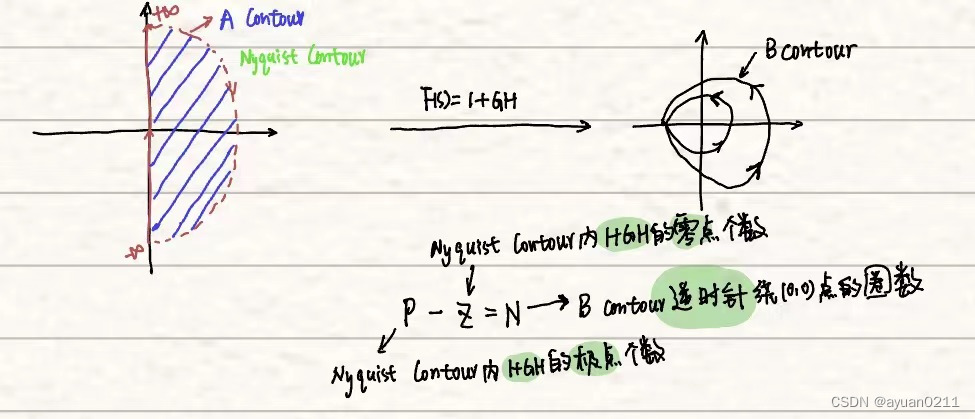 +∞
A Contour
Nyquist Contour
B contour
F(s)=1+GH
-∞
Nyquist Contour内1+GH的零点个数
P - Z = N → B contour逆时针绕(0,0)点的圈数
Nyquist Contour内1+GH的极点个数
CSDN @ayuan0211